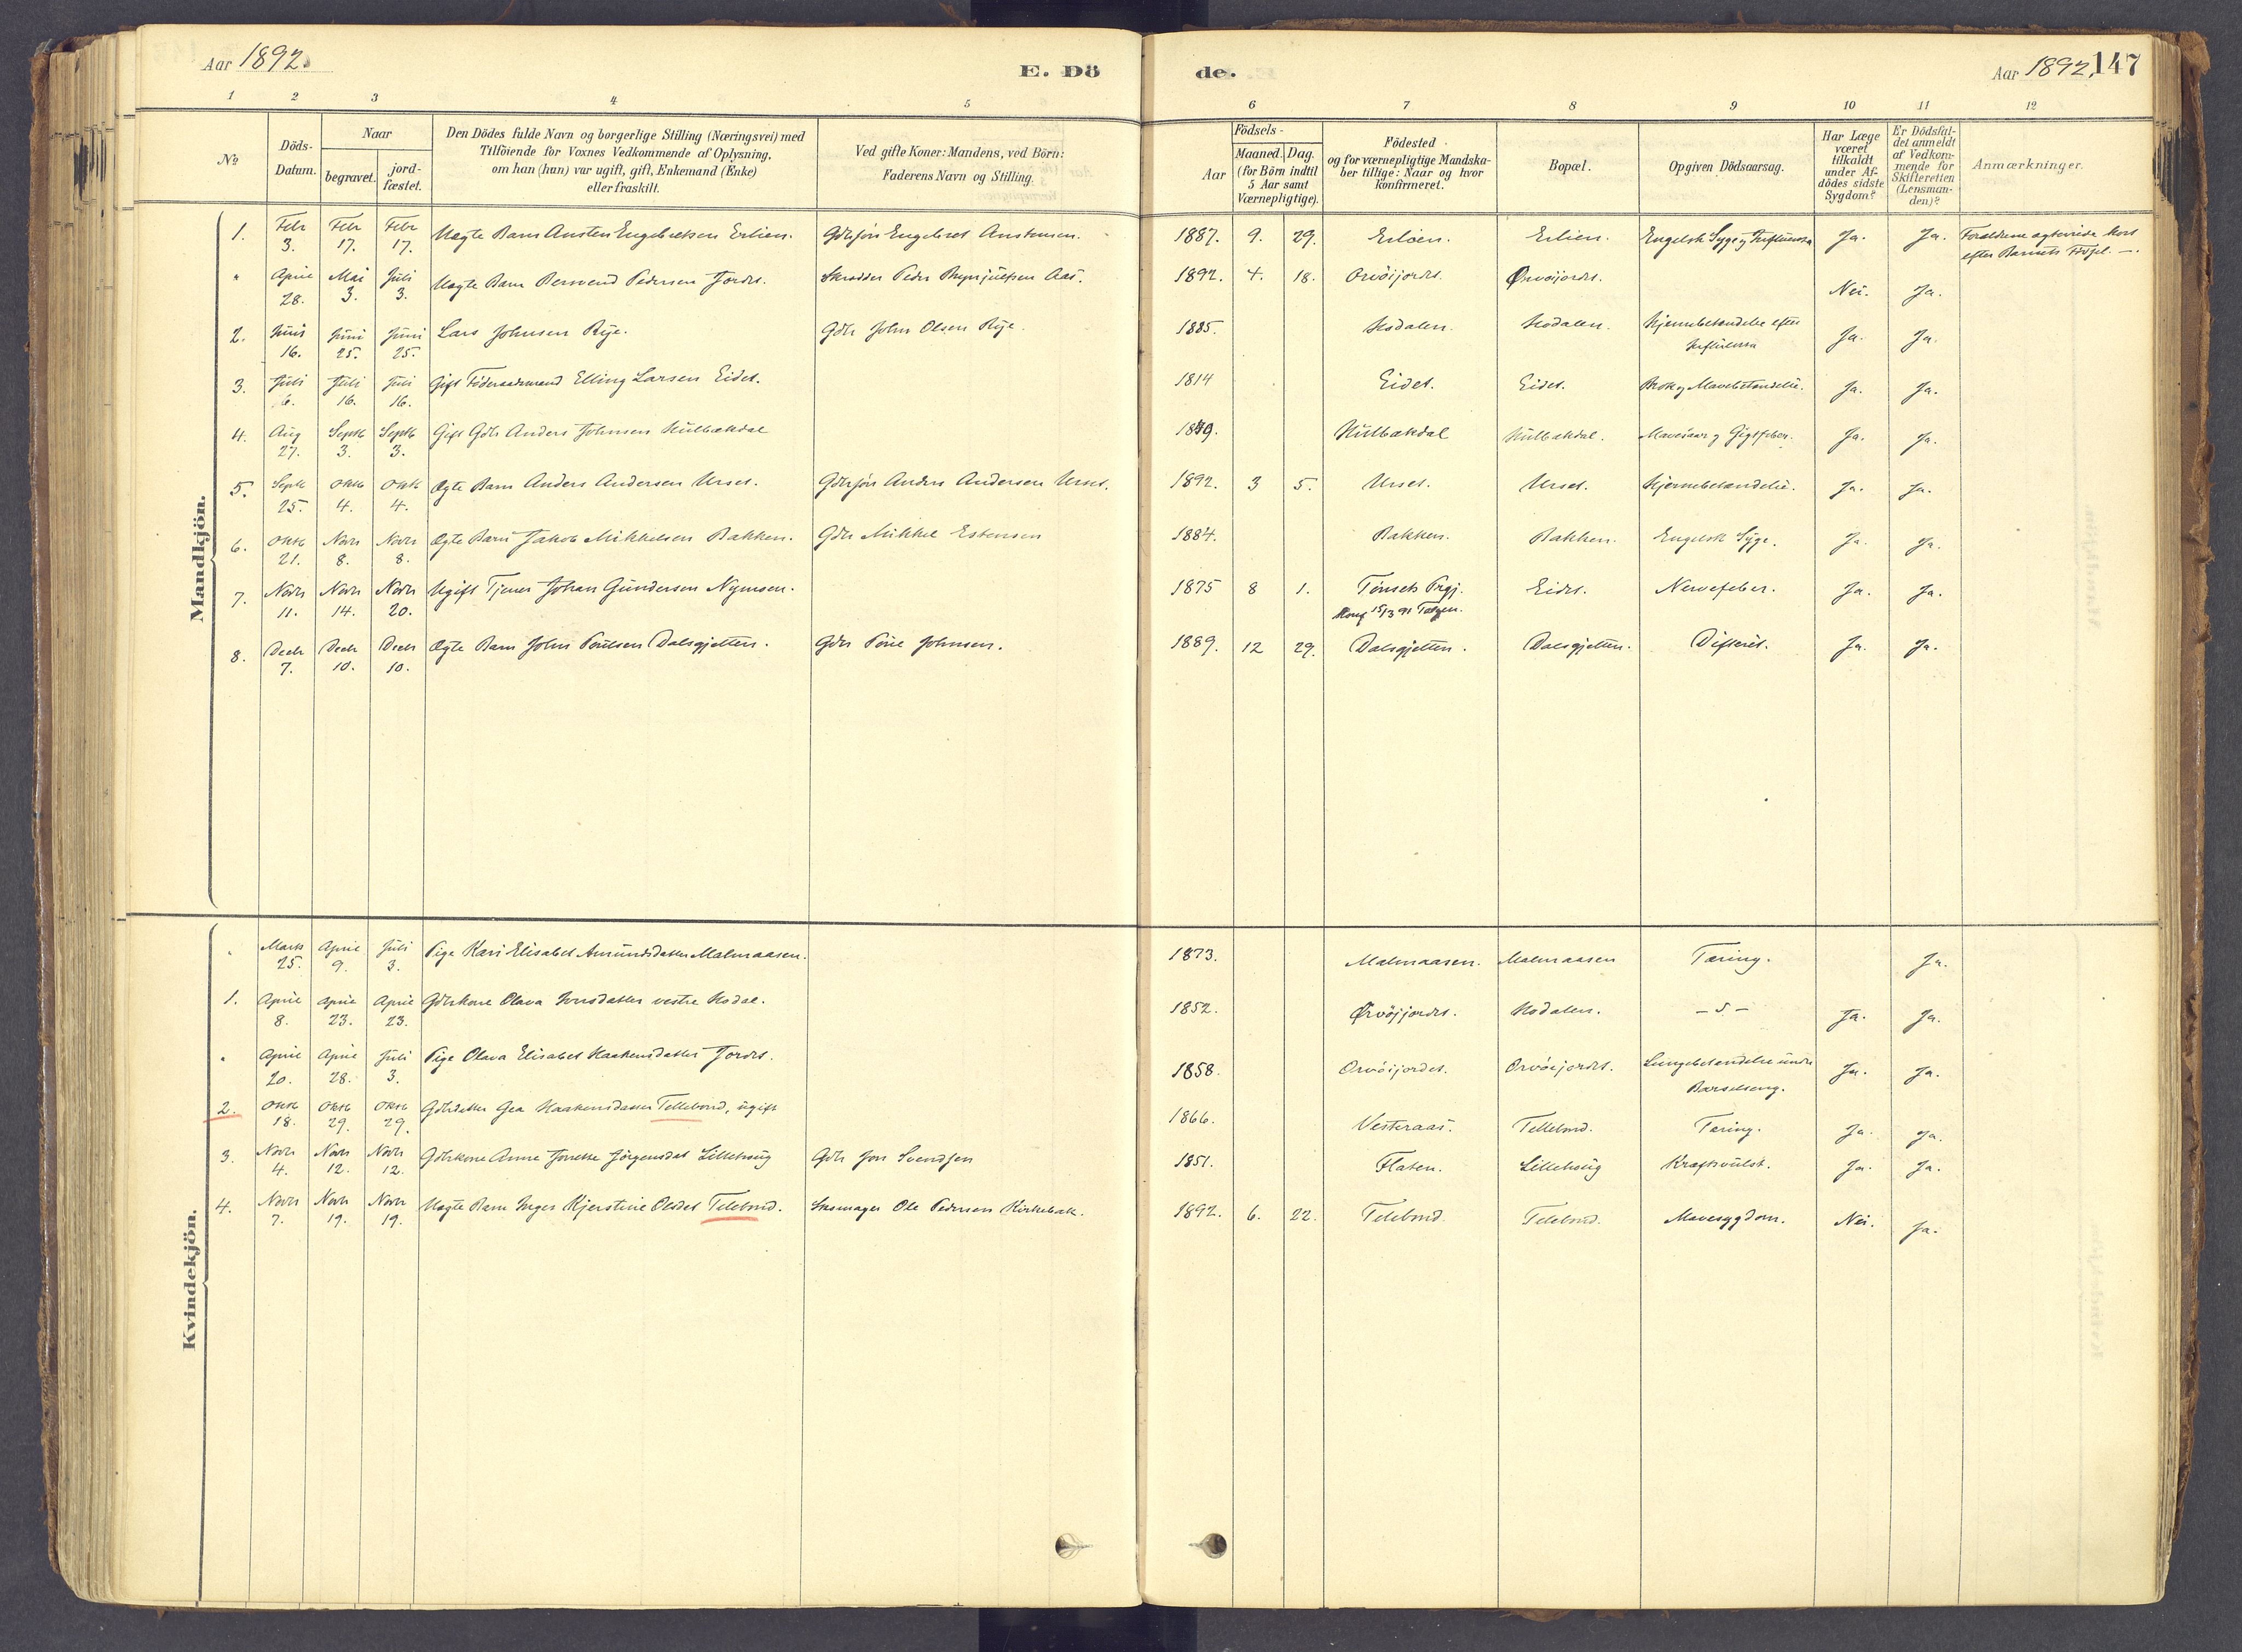 Aar 1892.
E. Dö
de.
Aar 1892. 147
1 2 3 4 5 6 7 8 9 10 11 12
№
Döds-Datum.
Naar
begravet.
jord-fæstet.
Den Dödes fulde Navn og borgerlige Stilling (Næringsvei) med
Tilföiende for Voxnes Vedkommende af Oplysning,
om han (hun) var ugift, gift, Enkemand (Enke)
eller fraskilt.
Ved gifte Koner: Mandens, ved Börn:
Faderens Navn og Stilling.
Födsels-
Aar
Maaned. Dag.
(for Börn indtil
5 Aar samt
Værnepligtige).
Födested
og for værnepligtige Mandska-
ber tillige: Naar og hvor
konfirmeret.
Bopæl.
Opgiven Dödsaarsag.
Har Læge
været
tilkaldt
under Af-
dödes sidste
Sygdom?
Er Dödsfal-
det anmeldt
af Vedkom-
mende for
Skifteretten
(Lensman-
den)?
Anmærkninger.
Mandkjön.
1. Febr 3. Febr 17. Febr 17. Uægte Barn Austen Engebretsen Erlien. Gdbrsøn Engebret Anstensen. 1887. 9. 29. Erlien. Erlien. Engelsk Syge og Influenza Ja. Ja. Forældrene ægteviede kort
efter Barnets Fødsel.
" April 28. Mai 3. Juli 3. Uægte Barn Bernend Pedersen Jordet. Skrædder Peder Brynjulfsen Aas. 1892. 4. 18. Orvöijordet. Ørvöijordet. Nei. Ja.
2. Juni 16. Juni 25. Juni 25. Lars Johnsen Rye. Gdbr John Olsen Rye. 1885. Hodalen. Hodalen. Hjernebetændelse efter
Influenza Ja. Ja.
3. Juli 6. Juli 16. Juli 16. Gift Föderaadsmand Elling Larsen Eidet. 1814 Eidet. Eidet. Brok og Mavebetændelse. Ja. Ja.
4. Aug 27. Septb 3. Septb 3. Gift Gdbr Anders Johnsen Hulbækdal 1849. Hulbækdal Hulbækdal. Mavesaar og Gigtfeber. Ja. Ja.
5. Septb 25. Oktb 4. Oktb 4. Ægte Barn Anders Andersen Urset. Gdbrsøn Anders Andersen Urset. 1892. 3 5. Urset. Urset. Hjernebetændelse. Ja. Ja.
6. Oktb 21. Novbr 8. Novbr 8. Ægte Barn Jakob Mikkelsen Bakken. Gdbr Mikkel Estensen 1884. Bakken. Bakken. Engelsk Syge. Ja. Ja.
7. Novbr 11. Novbr 14. Novbr 20. Ugift Tjener Johan Gundersen Nymoen. 1875 8 1. Tönsets Prgj.
Konf 15/3 91 Tolgen. Eidet. Nervefeber. Ja. Ja.
8. Decbr 7. Decbr 10. Decbr 10. Ægte Barn John Poulsen Dalsgjetten. Gdbr Poul Johnsen. 1889. 12 29. Dalsgjetten. Dalsgjetten. Difterit. Ja. Ja.
Kvindekjön.
" Marts 25. April 9. Juli 3. Pige Kari Elisabet Amundsdatter Malmaasen. 1873. Malmaasen. Malmaasen Tæring. Ja.
1. April 8. April 23. April 23. Gdbrkone Olava Iversdatter vestre Hodal. 1852. Ørvöijordet. Hodalen. - S - Ja. Ja.
" April 20. April 28. Juli 3. Pige Olava Elisabet Haakensdatter Jordet. 1858. Orvöijordet. Orvöijordet. Lungebetændelse under
Barselseng. Ja. Ja.
2. Oktb 18. Oktb 29. Oktb 29. Gdbrdatter Gea Haakensdatter Tellebond, ugift 1866. Vesteraas. Tellebond. Tæring. Ja. Ja.
3. Novbr 4. Novbr 12. Novbr 12. Gdbrkone Anne Jonette Jörgensdat Lillehaug Gdbr Jon Svendsen 1851. Flaten. Lillehaug Kræftsvulst. Ja. Ja.
4. Novbr 7. Novbr 19. Novbr 19. Uægte Barn Inger Kjerstine Olsdat Telebond. Ole Pedersen Kirkebak. 1892. 6. 22. Telebond. Telebond. Mavesygdom. Nei. Ja.